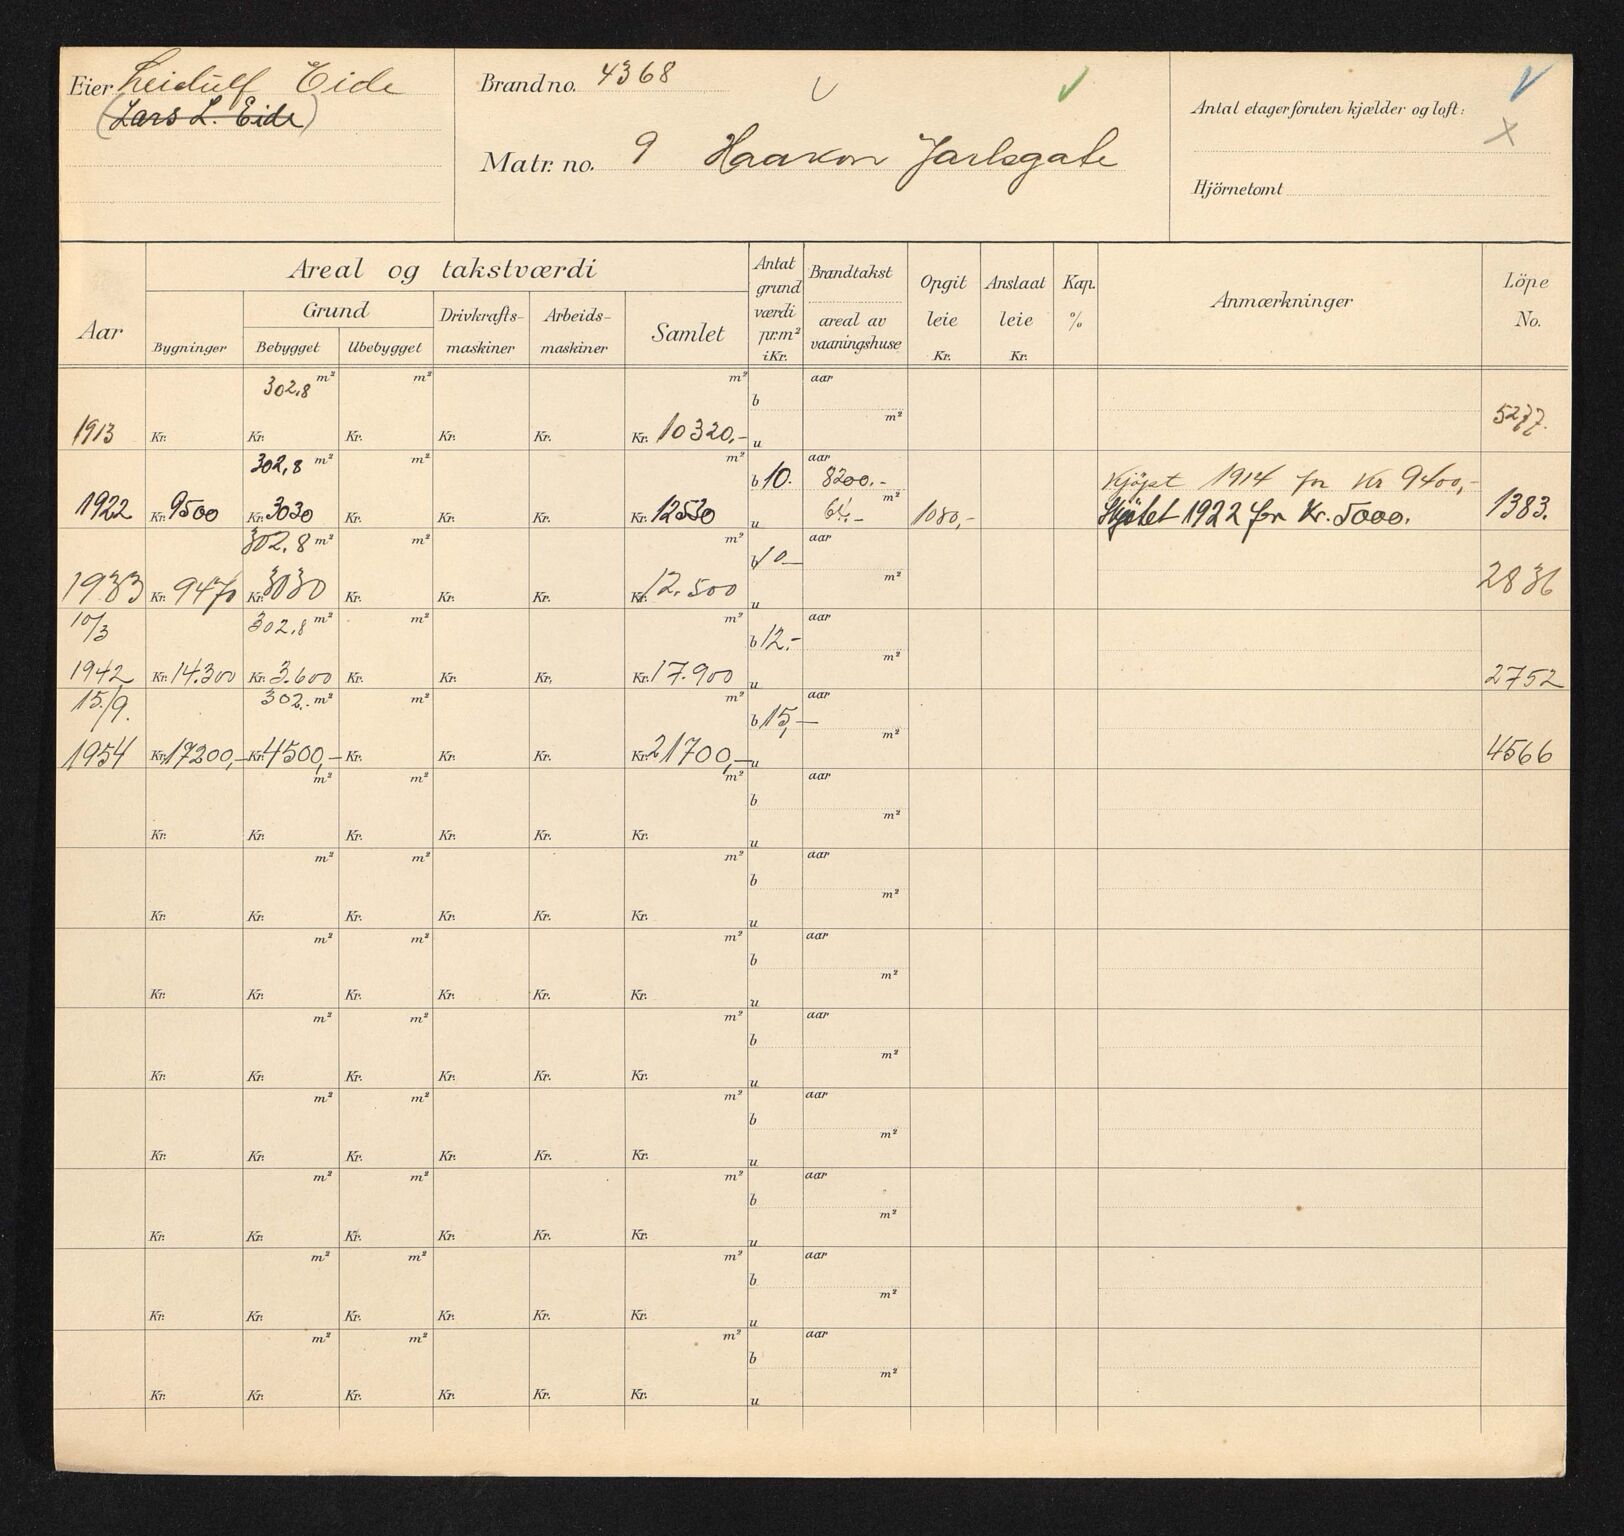 Eier Leidulf Eide
(Lars L. Eide)
Brandno. 4368
Matr. no. 9 Haakon Jarlsgate
Antal etager foruten kjælder og loft:
Hjörnetomt
Aar
Areal og takstværdi
Bygninger
Grund
Bebygget Ubebygget
Drivkrafts-
maskiner
Arbeids-
maskiner
Samlet
Antat
grund
værdi
pr.m²
i Kr.
Brandtakst
areal av
vaaningshuse
Opgit
leie
Kr.
Anslaat
leie
Kr.
Kap.
%
Anmærkninger
Löpe
No.
302,8 m² m² m² aar
b
m²
1913 Kr. Kr. Kr. Kr. Kr. Kr. 10320,- u 5277.
302,8 m² m² m² aar
b 10. 8200.- Kjöpt 1914 for Kr 9400,-
m²
1922 Kr. 9500 Kr. 3030 Kr. Kr. Kr. Kr. 12530 u 64.- 1080,- 1922 for Kr. 5000. 1383.
302,8 m² m² m² aar
b 10—
m²
1933 Kr. 9470 Kr. 3030 Kr. Kr. Kr. Kr. 12.500 u 2836
10/3 302,8 m² m² m² aar
b 12.-
m²
1942 Kr. 14.300 Kr. 3.600 Kr. Kr. Kr. Kr. 17.900 u 2752
15./9. 302.- m² m² m² aar
b 15,—
m²
1954 Kr. 17200,- Kr. 4500,- Kr. Kr. Kr. Kr. 21700,- u 4566
m² m² m² aar
b
m²
Kr. Kr. Kr. Kr. Kr. Kr. u
m² m² m² aar
b
m²
Kr. Kr. Kr. Kr. Kr. Kr. u
m² m² m² aar
b
m²
Kr. Kr. Kr. Kr. Kr. Kr. u
m² m² m² aar
b
m²
Kr. Kr. Kr. Kr. Kr. Kr. u
m² m² m² aar
b
m²
Kr. Kr. Kr. Kr. Kr. Kr. u
m² m² m² aar
b
m²
Kr. Kr. Kr. Kr. Kr. Kr. u
m² m² m² aar
b
m²
Kr. Kr. Kr. Kr. Kr. Kr. u
m² m² m² aar
b
m²
Kr. Kr. Kr. Kr. Kr. Kr. u